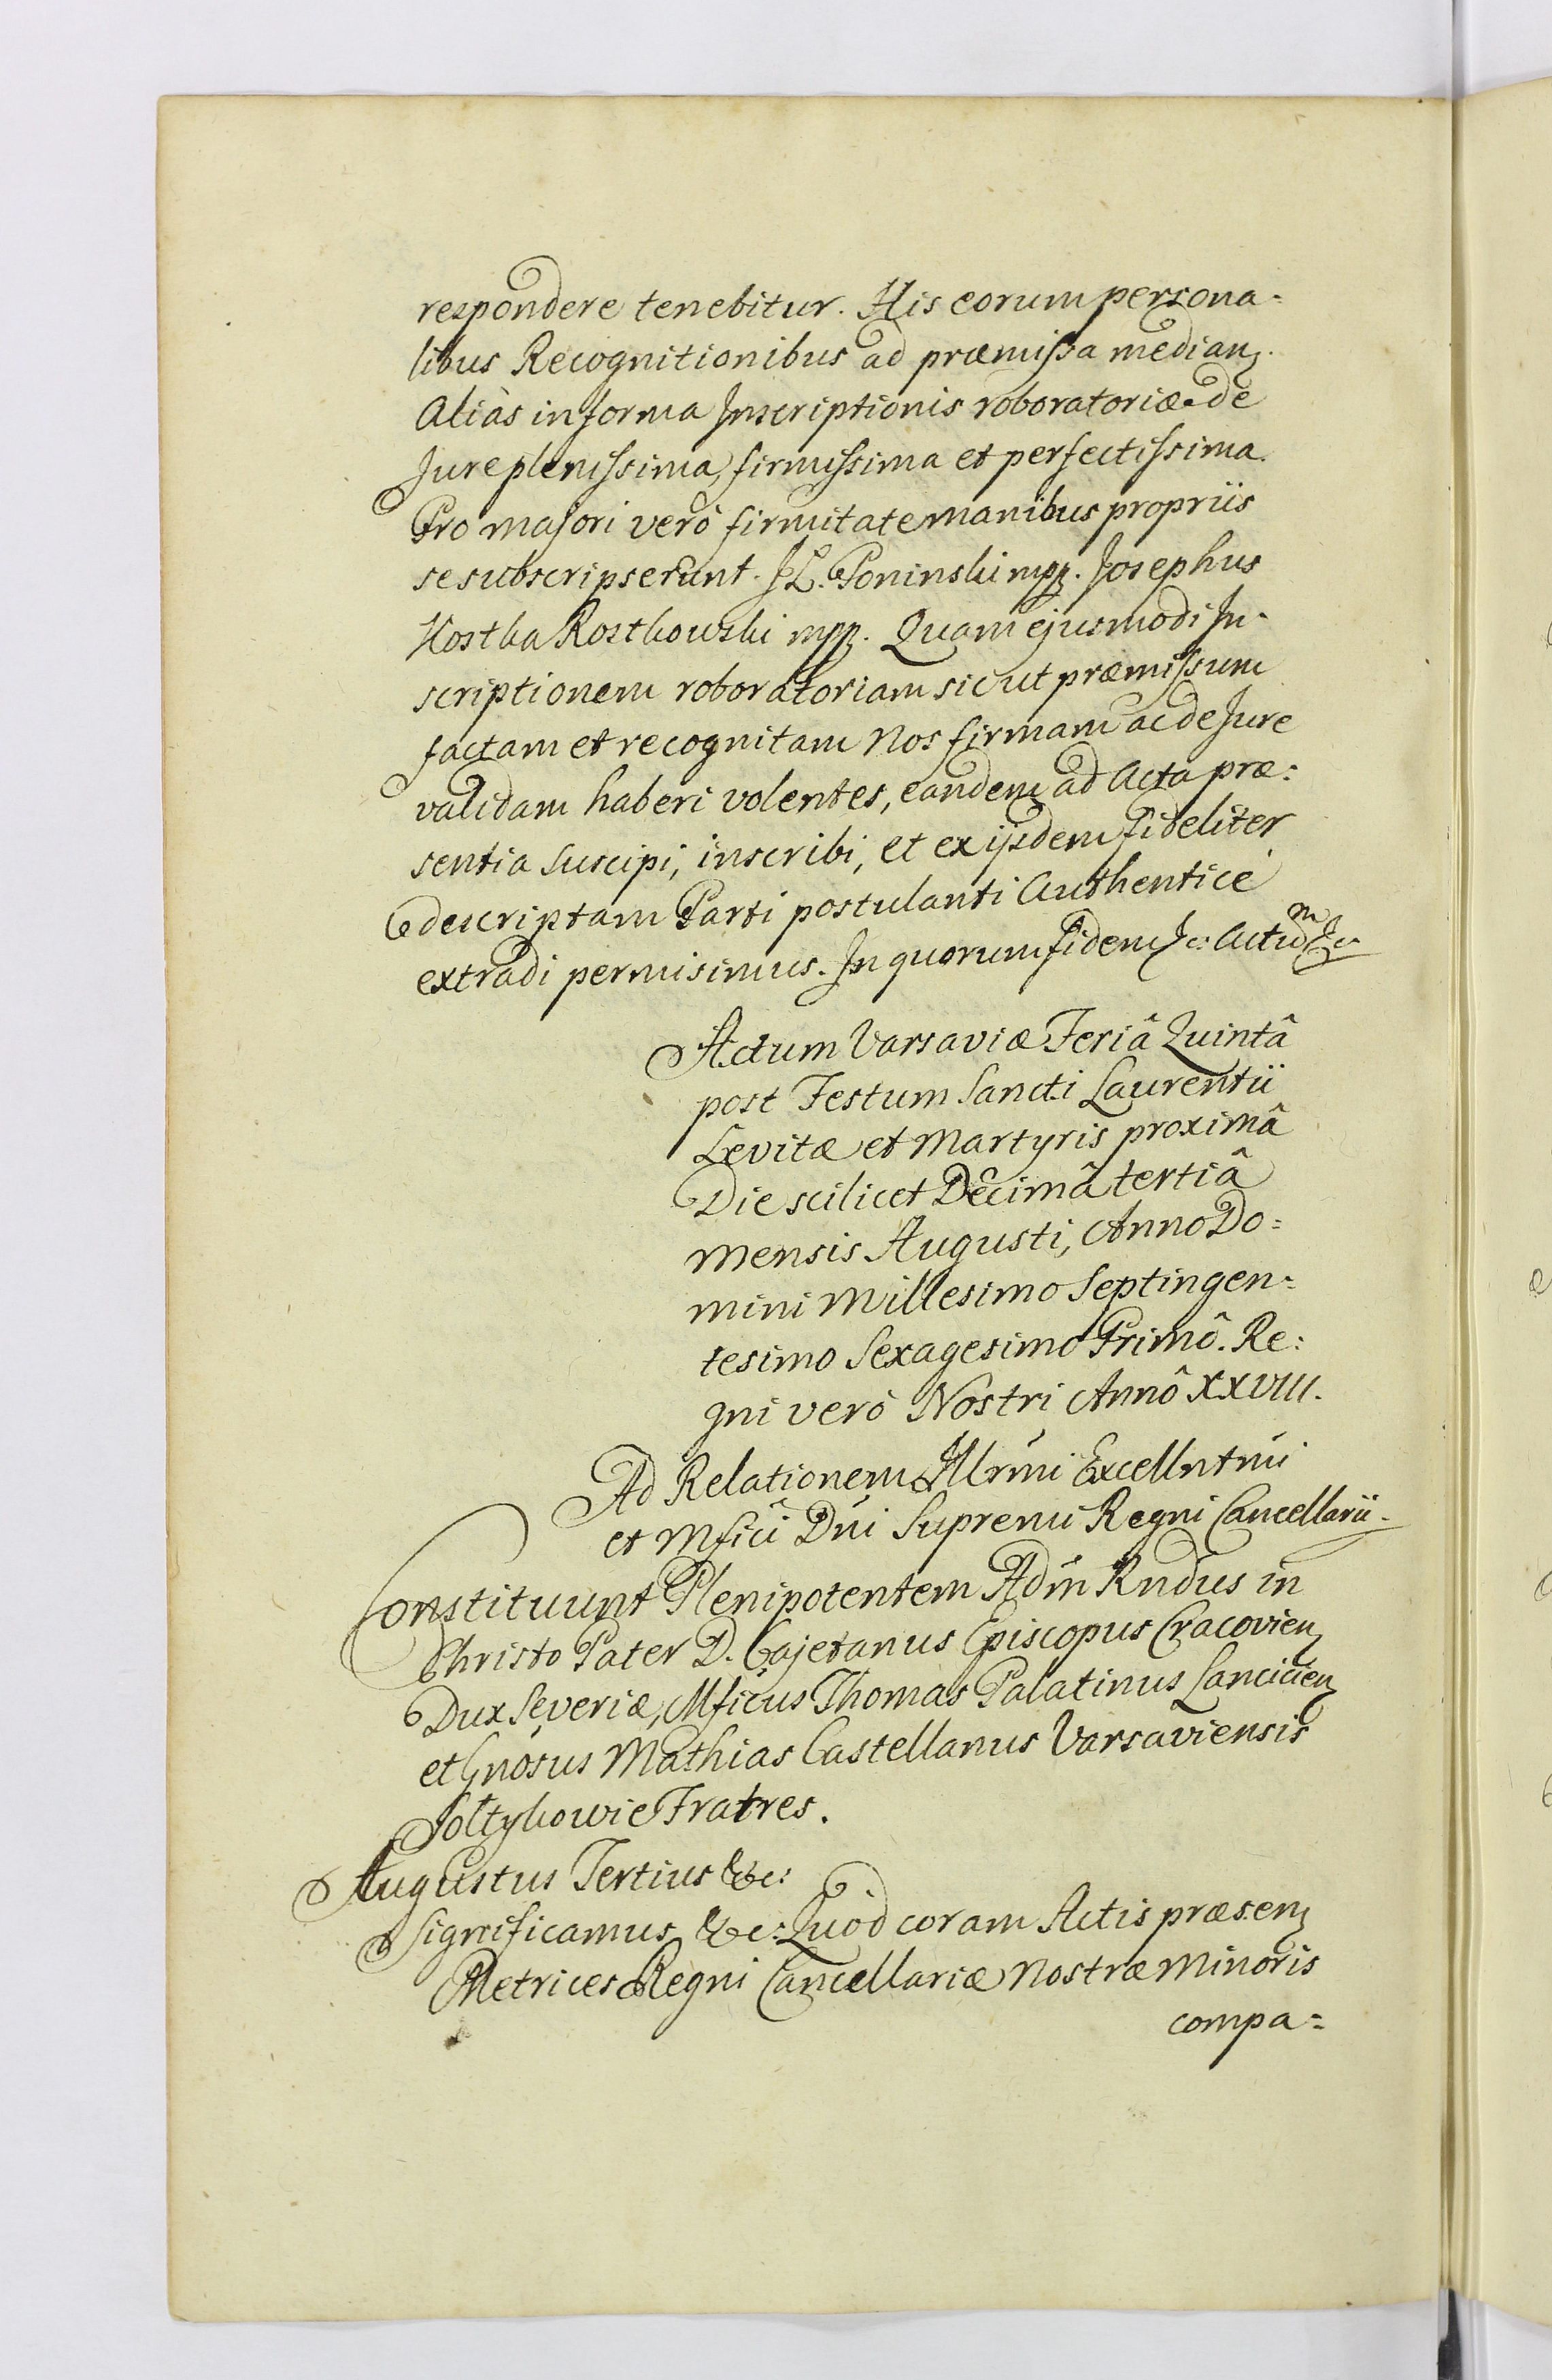 respondere tenebitur. His eorum persona=
libus Recognitionibus ad præmissa median.
Aliàs in forma Inscriptionis roboratoriæ de
Jure plenissima, firmissima et perfectissima.
Pro majori verò firmitate manibus propriis
se subscripserunt. J.L. Poninski mpp. Josephus
Kostka Rostkowski mpp. Quam ejusmodi In=
scriptionem roboratoriam sicut præmissum
factam et recognitam Nos firmam ac de Jure
validam haberi volentes, eandem ad Acta præ=
sentia suscipi, inscribi, et ex ijsdem fideliter
descriptam Parti postulanti Authenticè
extradi permisimus. In quorum fidem &c: Actum &c:
Actum Varsaviæ Feriâ Quintâ
post Festum Sancti Laurentii
Levitæ et Martyris proximâ
Die scilicet Decimâ tertiâ
Mensis Augusti, Anno Do=
mini Millesimo Septingen=
tesimo Sexagesimo Primô. Re=
gni verò Nostri Annô XXVIII.
Ad Relationem Illrmi Excellntmi
et Mfici Dni Supremi Regni Cancellarii.
Constituunt Plenipotentem Adm Rndus in
Christo Pater D. Cajetanus Episcopus Cracovien
Dux Severiæ, Mficus Thomas Palatinus Lancicien
et Gnosus Mathias Castellanus Varsaviensis
Sołtykowie Fratres.
Augustus Tertius &c:
Significamus &c: Quod coram Actis præsen
Metrices Regni Cancellariæ Nostræ Minoris
compa=